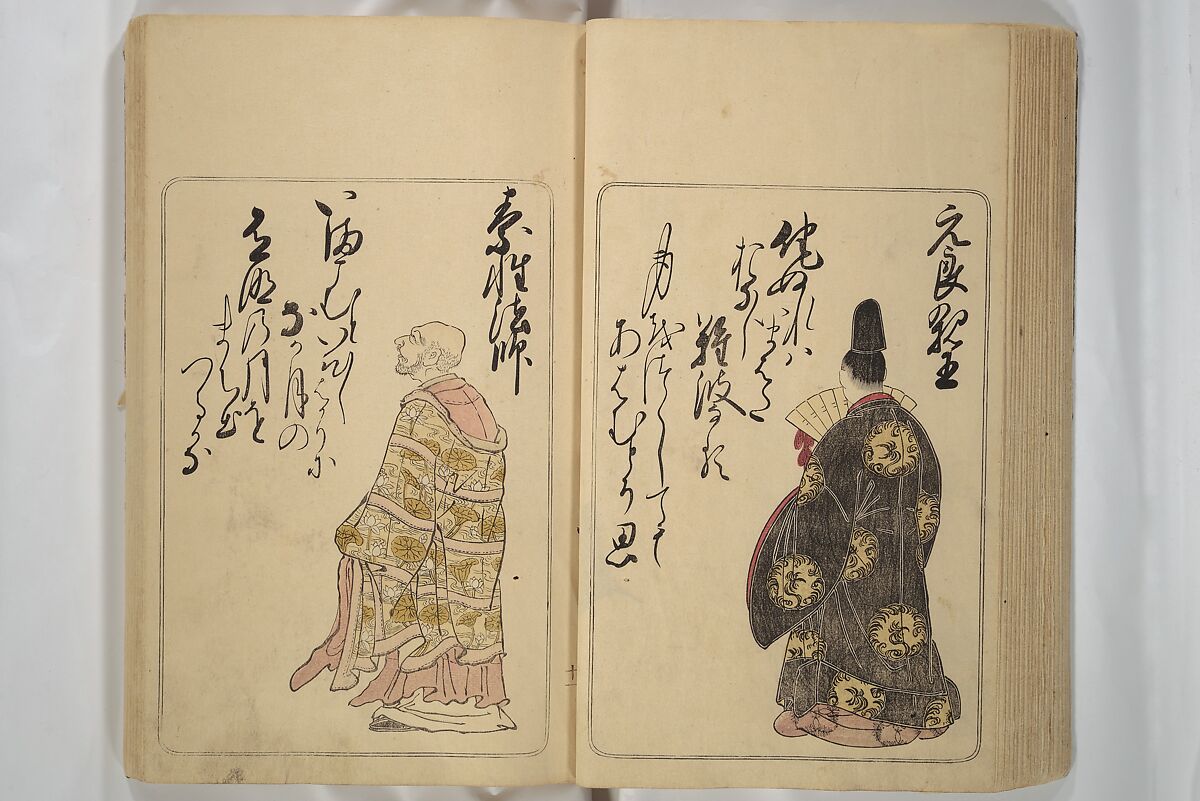 元良親王
侘ぬれハいまはた
おなし
難波なる
身をつくしても
あはむとそ思
素性法師
いまこむといひしはかりに
なか月の
有明の月を
まち出
つるかな